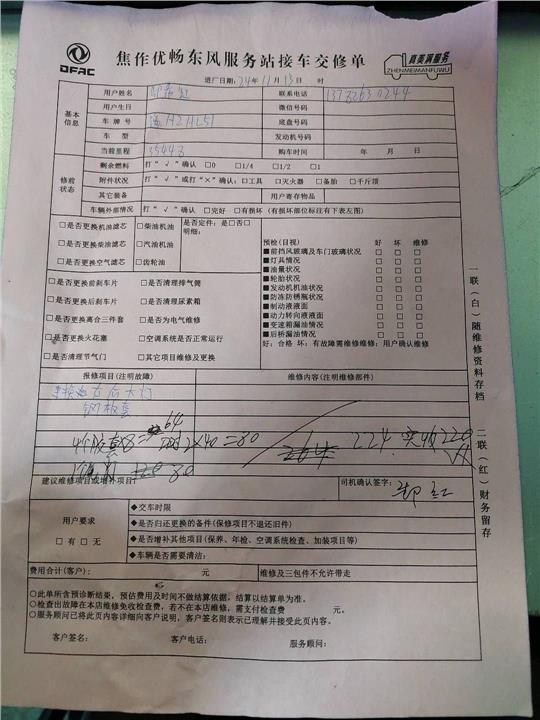 DFAC
焦作优畅东风服务站接车交修单
真美满服务
ZHENMEIMANFUWU
进厂日期:24年11月13日 时
基本信息
用户姓名
联系电话
用户生日
微信号码
车牌号
底盘号码
车型
发动机号码
当前里程 35443
购车时间 年 月 日
修前状态
剩余燃料 打“√”确认 □0 □1/4 □1/2 □1
附件状况 打“√”或打“×”确认:□工具 □灭火器 □备胎 □千斤顶
其它装备
用户寄存物品
车辆外部情况 打“√”确认 □完好 □有损坏(有损坏部位标注有下表左图)
□是否更换机油滤芯 □柴油机油
□是否更换柴油滤芯 □汽油机油
□是否更换空气滤芯 □齿轮油
是否定件:是□否□
明细:
□是否更换前刹车片 □是否清理排气筒
□是否更换后刹车片 □是否清理尿素箱
□是否更换离合三件套 □是否为电气维修
□是否更换火花塞 □空调系统是否正常运行
□是否清理节气门 □其它项目维修及更换
预检(目视) 好 坏 维修
■前挡风玻璃及车门玻璃状况 □ □ □
■灯具情况 □ □ □
■油量状况 □ □ □
■轮胎状况 □ □ □
■发动机机油情况 □ □ □
■防冻防锈瓶状况 □ □ □
■制动液液面 □ □ □
■动力转向液液面 □ □ □
■变速箱漏油情况 □ □ □
■后桥漏油情况 □ □ □
好:合格 坏:有故障需维修维修:用户确认维修
报修项目(注明故障)
维修内容(注明维修部件)
右后大灯
钢板套
64
2×40=80
224 实收220
80
建议维修项目或增补项目:
司机确认签字:
用户要求
□有 □无
◆交车时限
◆是否归还更换的备件(保修项目不退还旧件)
◆是否增补其他项目(保养、年检、空调系统检查、加装项目等)
◆车辆是否需要清洁:
费用合计(客户): 元
维修及三包件不允许带走
○此单所含预诊断结果,预估费用及时间不做结算依据,结算以结算单为准。
○检查出故障在本店维修免收检查费,若不在本店维修,需支付检查费 元。
○服务顾问已将此页内容详细向客户说明,客户签名则表示已理解并接受此页内容。
客户签名: 客户电话: 服务顾问:
一联(白)随维修资料存档
二联(红)财务留存